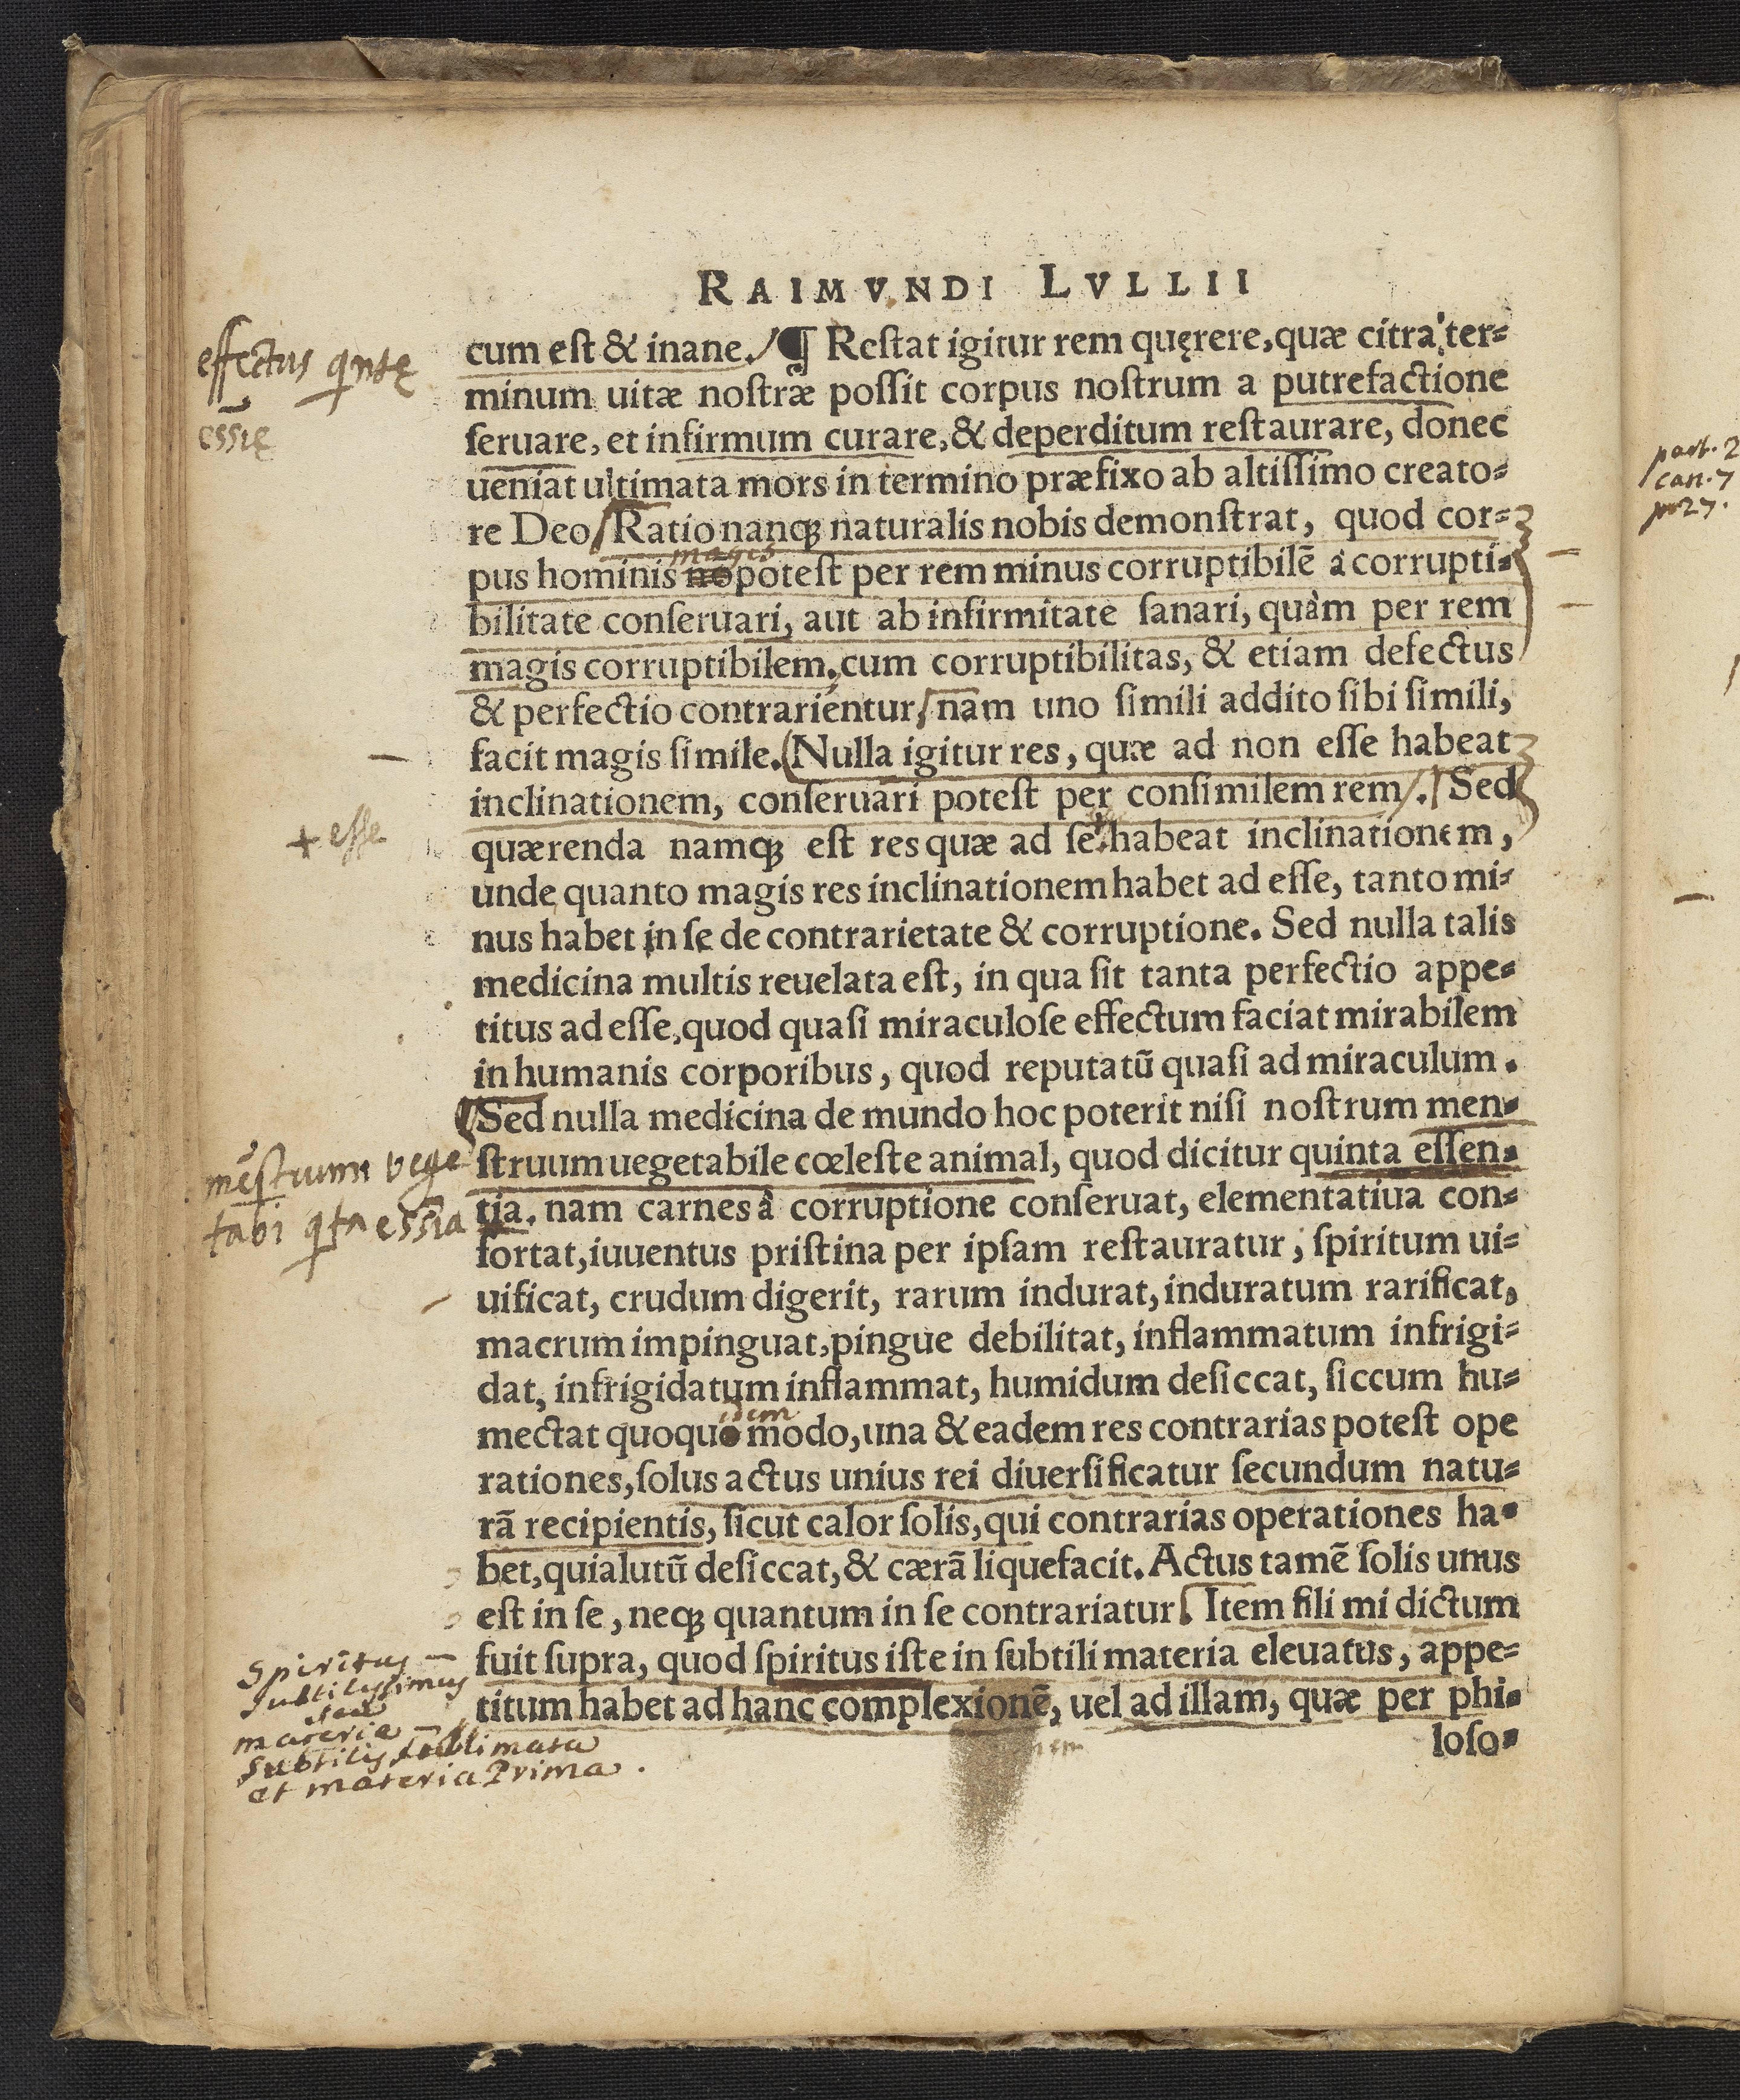 RAIMVNDI LVLLII
cum eſt & inane. ¶ Reſtat igitur rem quęrere, quæ citra ter-
minum uitæ noſtræ poſſit corpus noſtrum a putrefactione
ſeruare, et infirmum curare, & deperditum reſtaurare, donec
ueniat ultimata mors in termino præfixo ab altiſſimo creato-
re Deo Ratio nanq; naturalis nobis demonſtrat, quod cor-
magis
pus hominis nō poteſt per rem minus corruptibilē à corrupti-
bilitate conſeruari, aut ab infirmitate ſanari, quàm per rem
magis corruptibilem. cum corruptibilitas, & etiam defectus
& perfectio contrarientur, nam uno ſimili addito ſibi ſimili,
facit magis ſimile. (Nulla igitur res, quæ ad non eſſe habeat
inclinationem, conſeruari poteſt per conſimilem rem. Sed
quærenda namq; eſt res quæ ad ſe + habeat inclinationem,
unde quanto magis res inclinationem habet ad eſſe, tanto mi-
nus habet in ſe de contrarietate & corruptione. Sed nulla talis
medicina multis reuelata eſt, in qua ſit tanta perfectio appe-
titus ad eſſe, quod quaſi miraculoſe effectum faciat mirabilem
in humanis corporibus, quod reputatū quaſi ad miraculum.
Sed nulla medicina de mundo hoc poterit niſi noſtrum men-
ſtruum uegetabile cœleſte animal, quod dicitur quinta eſſen-
tia. nam carnes â corruptione conſeruat, elementatiua con-
fortat, iuuentus priſtina per ipſam reſtauratur, ſpiritum ui-
uificat, crudum digerit, rarum indurat, induratum rarificat,
macrum impinguat, pingue debilitat, inflammatum infrigi-
dat, infrigidatum inflammat, humidum deſiccat, ſiccum hu-
idem
mectat quoquo modo, una & eadem res contrarias poteſt ope
rationes, ſolus actus unius rei diuerſificatur ſecundum natu-
rā recipientis, ſicut calor ſolis, qui contrarias operationes ha-
bet, quia lutū deſiccat, & cærā liquefacit. Actus tamē ſolis unus
eſt in ſe, neq; quantum in ſe contrariatur. Item fili mi dictum
fuit ſupra, quod ſpiritus iſte in ſubtili materia eleuatus, appe-
titum habet ad hanc complexionē, uel ad illam, quæ per phi-
loſo-
effectus qntę
essię
+ esse
mēstruum vege
tabi qta essia
Spiritus –
subtilissimus
seu
materia –
subtilis sublimata
et materia Prima.
part. 2
can. 7